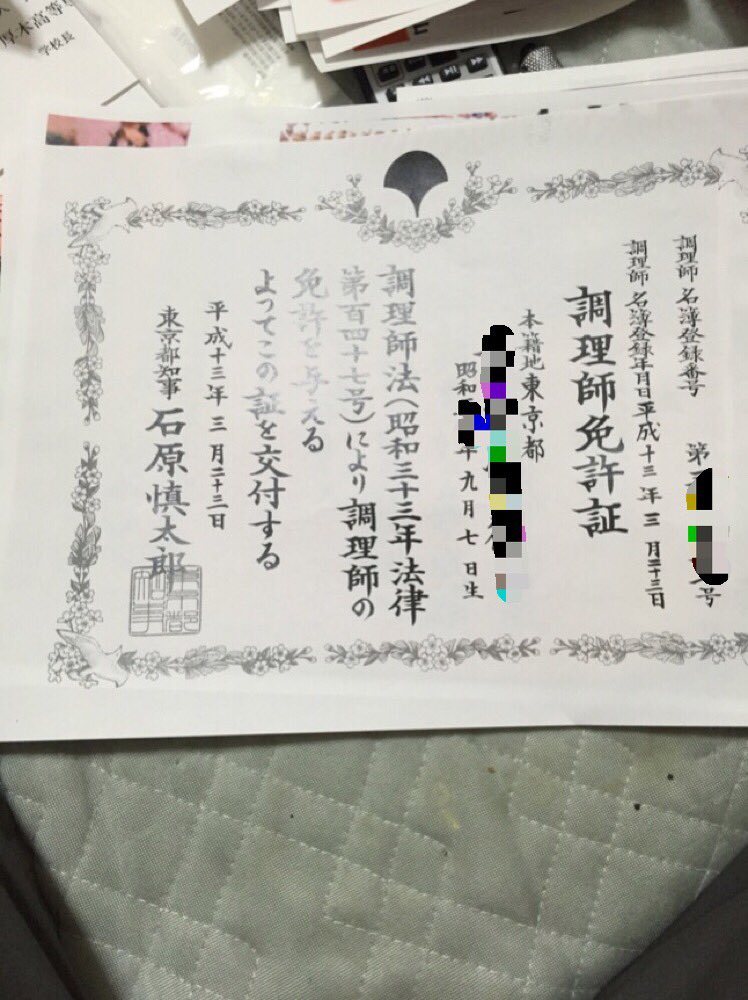 調理師名簿登録番号 第 号
調理師名簿登録年月日平成十三年三月二十三日
調理師免許証
本籍地東京都
昭和 年九月七日生
調理師法(昭和三十三年法律
第百四十七号)により調理師の
免許を与える
よってこの証を交付する
平成十三年三月二十三日
東京都知事 石原慎太郎
厚木高等
学校長